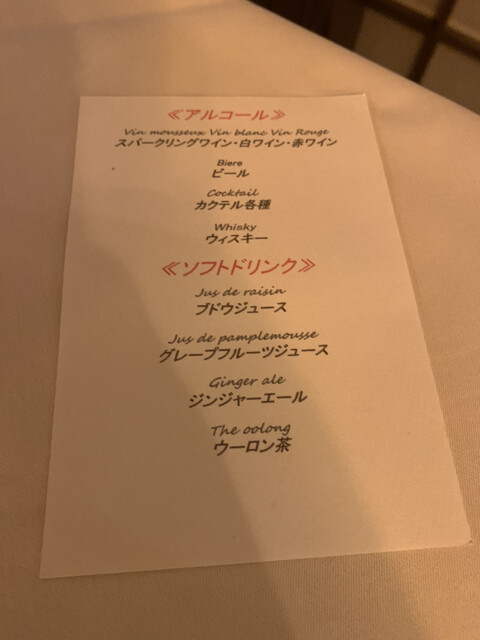 ≪アルコール≫
Vin mousseux Vin blanc Vin Rouge
スパークリングワイン・白ワイン・赤ワイン
Biere
ビール
Cocktail
カクテル各種
Whisky
ウィスキー
≪ソフトドリンク≫
Jus de raisin
ブドウジュース
Jus de pamplemousse
グレープフルーツジュース
Ginger ale
ジンジャーエール
The oolong
ウーロン茶